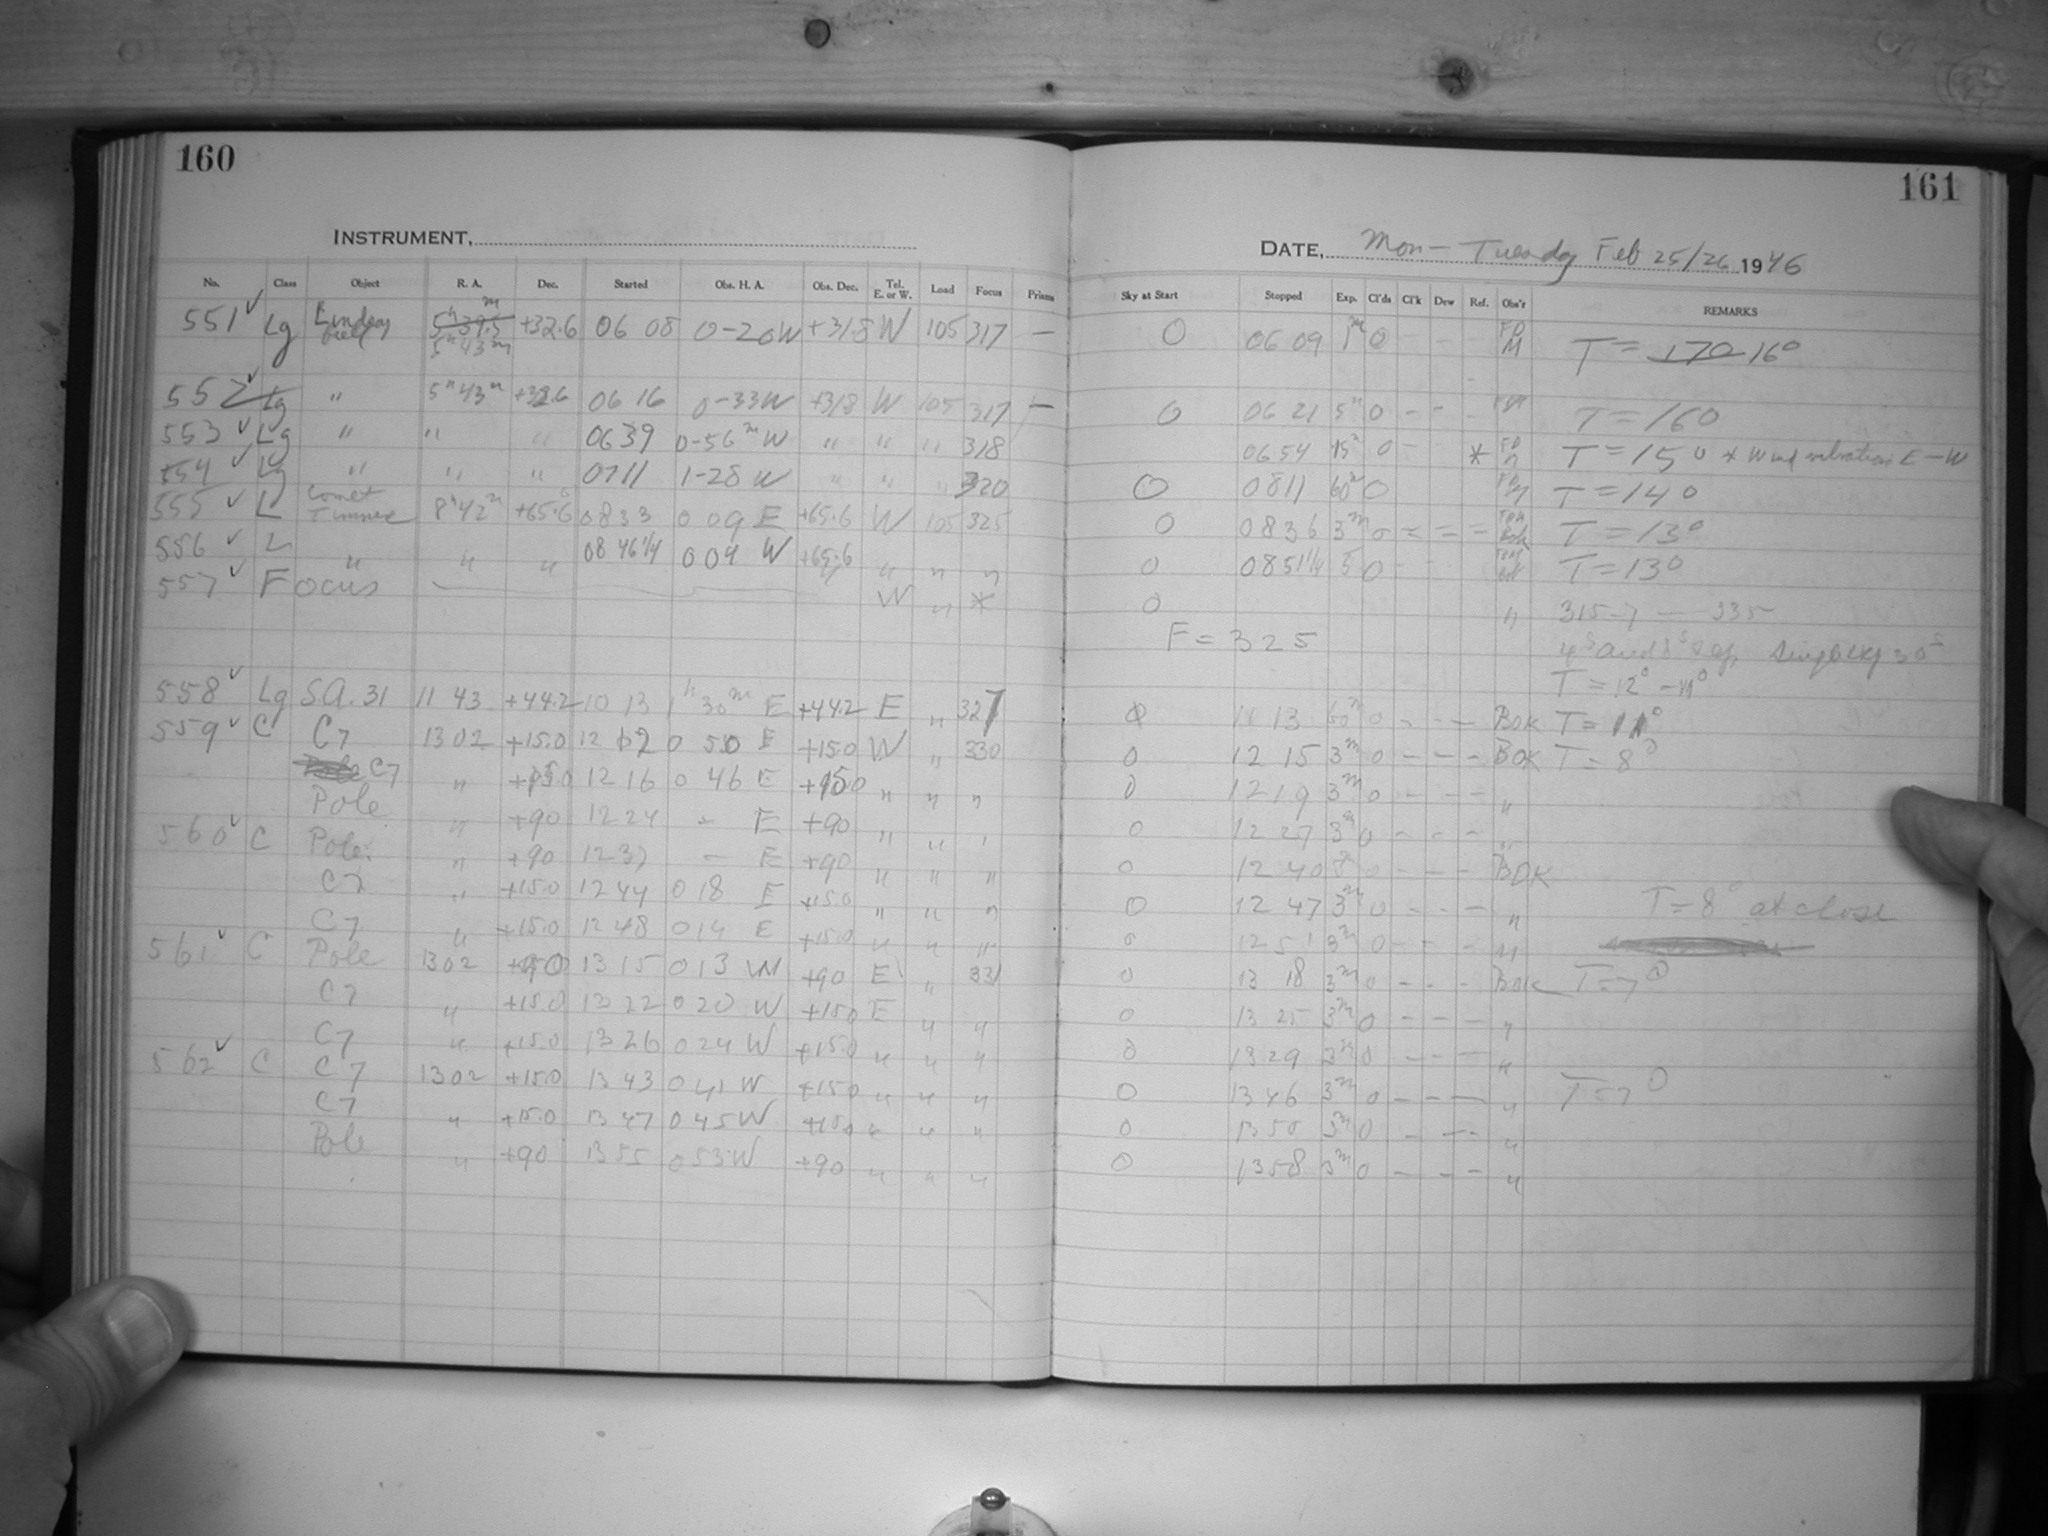 160
INSTRUMENT,
No. Class Object R. A. Dec. Started Obs. H. A. Obs. Dec. Tel. E. or W. Load Focus Prisms
551 ✓ Lg Lindsay field 5h 39.5m 5h 43m +32.6 06 08 0-20W +31.8 W 105 317 —
552 ✓ Lg " 5h 43m +32.6 06 16 0-33W +31.8 W 105 317 —
553 ✓ Lg " " " 0639 0-56m W " " " 318
554 ✓ Lg " " " 0711 1-28 W " " " 320
555 ✓ L Comet Timmers 8h 42m +65.6 0833 0 09 E +65.6 W 105 325
556 ✓ L " " " 08 46 1/4 0 04 W +65.6 " " "
557 ✓ Focus W " *
558 ✓ Lg SA. 31 11 43 +44.2 10 13 1h 30m E +44.2 E " 327
559 ✓ C C7 1302 +15.0 12 12 0 50 E +15.0 W " 330
C7 " +15.0 12 16 0 46 E +15.0 " " "
Pole " +90 1224 - E +90 " " "
560 ✓ C Pole " +90 1237 - E +90 " " "
C7 " +15.0 1244 0 18 E +15.0 " " "
C7 " +15.0 1248 0 14 E +15.0 " " "
561 ✓ C Pole 1302 +90 1315 0 13 W +90 E " 331
C7 " +15.0 1322 0 20 W +15.0 E " "
C7 " +15.0 1326 0 24 W +15.0 " " "
562 ✓ C C7 1302 +15.0 1343 0 41 W +15.0 " " "
C7 " +15.0 1347 0 45 W +15.0 " " "
Pole " +90 1355 0 53 W +90 " " "
161
DATE, Mon - Tuesday Feb 25/26 1946
Sky at Start Stopped Exp. Cl'ds Cl'k Dew Ref. Obs'r REMARKS
0 06 09 1m 0 - - - T = 170 16°
0 06 21 5m 0 - - - T = 16°
0654 15m 0 - - * T = 15° * Wind vibration E-W
0 0811 60m 0 T = 14°
0 0836 3m 0 - - - T = 13°
0 0851 1/4 5 0 - - T = 13°
0 " 315-7 — 335
F = 325
T = 12° - 11°
0 11 13 60m 0 - - - BOK T = 11°
0 12 15 3m 0 - - - BOK T = 8°
0 12 19 3m 0 - - - "
0 12 27 3m 0 - - - "
0 12 40 3m 0 - - - BOK
0 12 47 3m 0 - - - " T = 8° at close
0 12 51 3m 0 - - - "
0 13 18 3m 0 - - - Bok T = 7°
0 13 25 3m 0 - - - "
0 1329 3m 0 - - - "
0 1346 3m 0 - - - " T = 7°
0 1350 3m 0 - - - "
0 1358 3m 0 - - - "